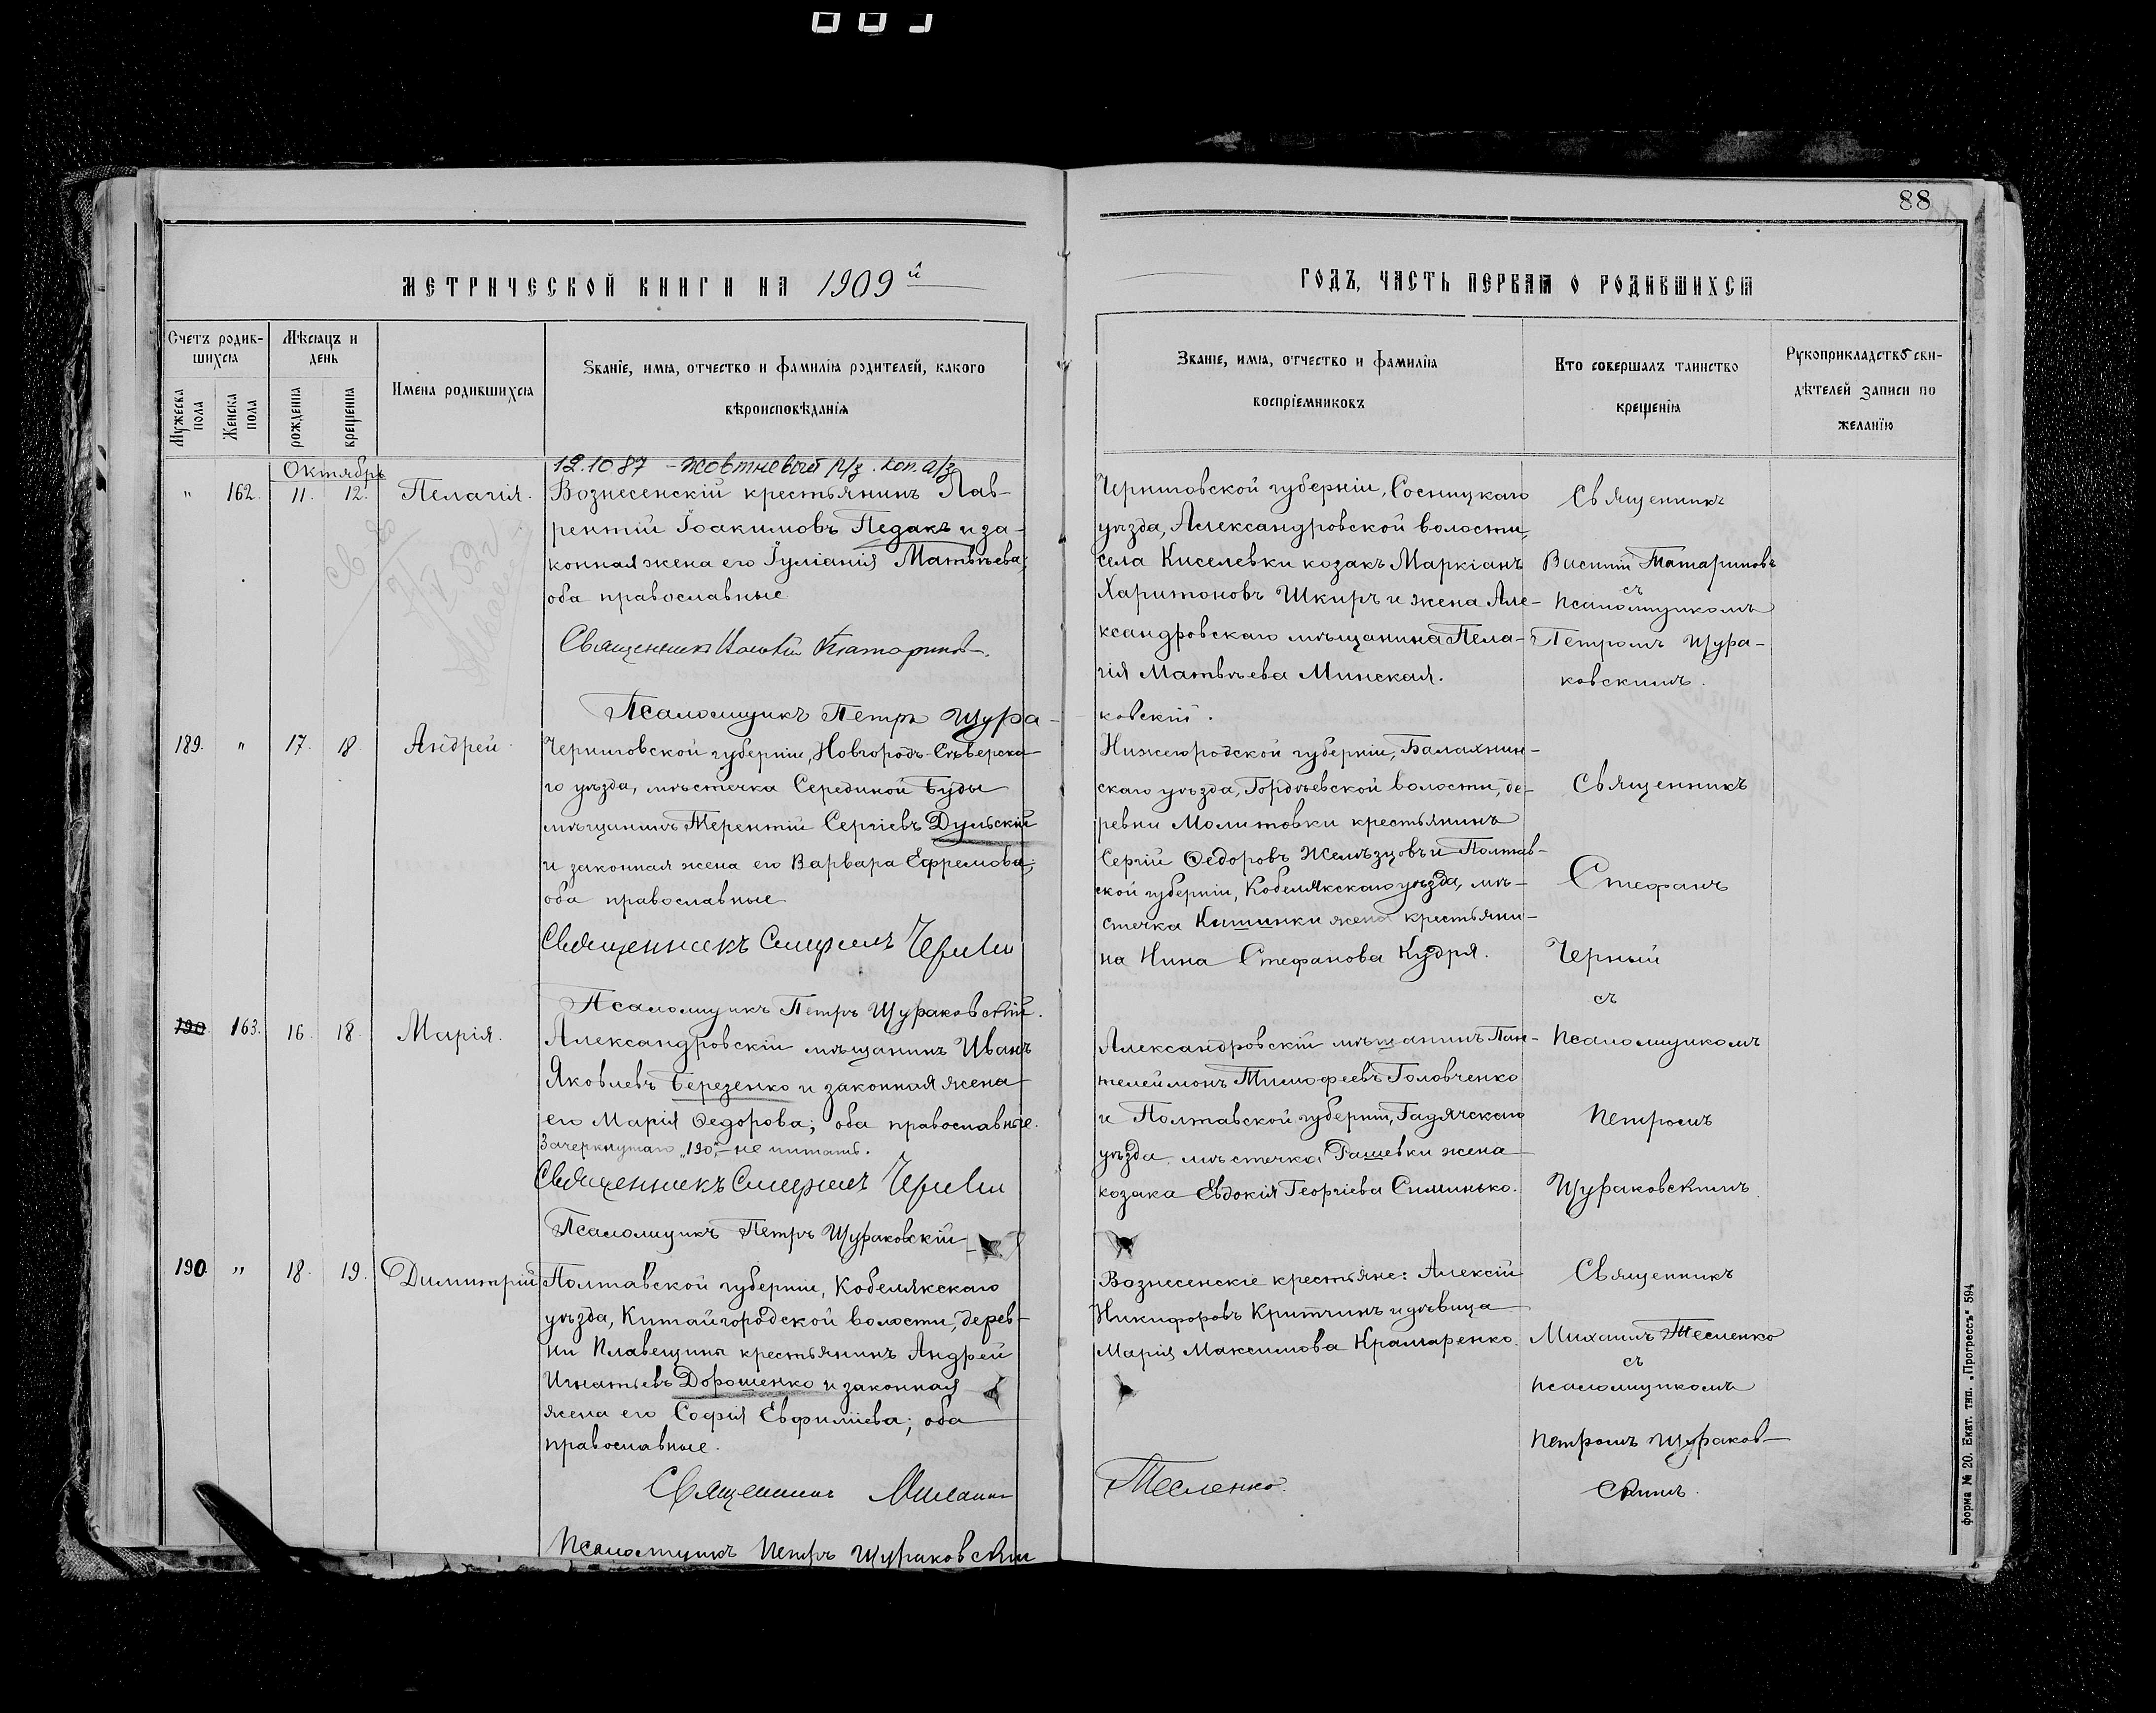 88
МЕТРИЧЕСКОЙ КНИГИ НА 1909й
ГОДЪ, ЧАСТЬ ПЕРВАЯ О РОДИВШИХСЯ
Счетъ родив-
шихся
Мужеска
пола
Женска
пола
Мѣсяцъ и
день
рожденія
крещенія
Имена родившихся
Званіе, имя, отчество и фамилія родителей, какого
вѣроисповѣданія
Званіе, имя, отчество и фамилія
воспріемниковъ
Кто совершалъ таинство
крещенія
Рукоприкладство сви-
дѣтелей записи по
желанію
Октябрь
12.10 87 - Жовтневый
" 162. 11. 12. Пелагія.
Вознесенскій крестьянинъ Лав-
рентій Іоакимовъ Педакъ и за-
конная жена его Іуліанія Матвѣева;
оба православные
Священникъ Татаринов.
Псаломщикъ Петръ Щура-
Черниговской губерніи, Сосницкаго
уѣзда, Александровской волости,
села Киселевки козакъ Маркіанъ
Харитоновъ Шкиръ и жена Але-
ксандровскаго мѣщанина Пела-
гія Матвѣева Минская.
ковскій.
Священникъ
Василій Татариновъ
съ
псаломщикомъ
Петромъ Щура-
ковскимъ.
189. " 17. 18. Андрей.
Черниговской губерніи, Новгородъ-Сѣверска-
го уѣзда, мѣстечка Середино́й Буды
мѣщанинъ Терентій Сергіевъ Дульскій
и законная жена его Варвара Ефремова;
оба православные
Священникъ Стефанъ Черный
Псаломщикъ Петръ Щураковскій.
Нижегородской губерніи, Балахнин-
скаго уѣзда, Гордѣевской волости, де-
ревни Молитовки крестьянинъ
Сергій Ѳедоровъ Желѣзцовъ и Полтав-
ской губерніи, Кобелякскаго уѣзда, мѣ-
стечка Кишинки жена крестьяни-
на Нина Стефанова Кудря.
Священникъ
Стефанъ
Черный
съ
псаломщикомъ
Петромъ
Щураковскимъ
190 163. 16. 18. Марія.
Александровскій мѣщанинъ Иванъ
Яковлевъ Березенко и законная жена
его Марія Ѳедорова; оба православные.
Зачеркнутаго „190“ - не читать.
Священникъ Стефанъ Черный
Псаломщикъ Петръ Щураковскій
Александровскій мѣщанинъ Пан-
телеймонъ Тимофеевъ Головченко
и Полтавской губерніи, Гадячскаго
уѣзда мѣстечка Рашевки жена
козака Евдокія Георгіева Симинько.
190 " 18. 19. Димитрій
Полтавской губерніи, Кобелякскаго
уѣзда, Китайгородской волости, дерев-
ни Плавещины крестьянинъ Андрей
Игнатьевъ Дорошенко и законная
жена его Софія Евфиміева; оба
православные.
Священникъ Михаилъ
Псаломщикъ Петръ Щураковскій
Вознесенскіе крестьяне: Алексій
Никифоровъ Критчинъ и дѣвица
Марія Максимова Крамаренко.
Тесленко.
Священникъ
Михаилъ Тесленко
съ
псаломщикомъ
Петромъ Щураков-
скимъ.
Форма № 20. Екат. тип. „Прогрессъ“ 594